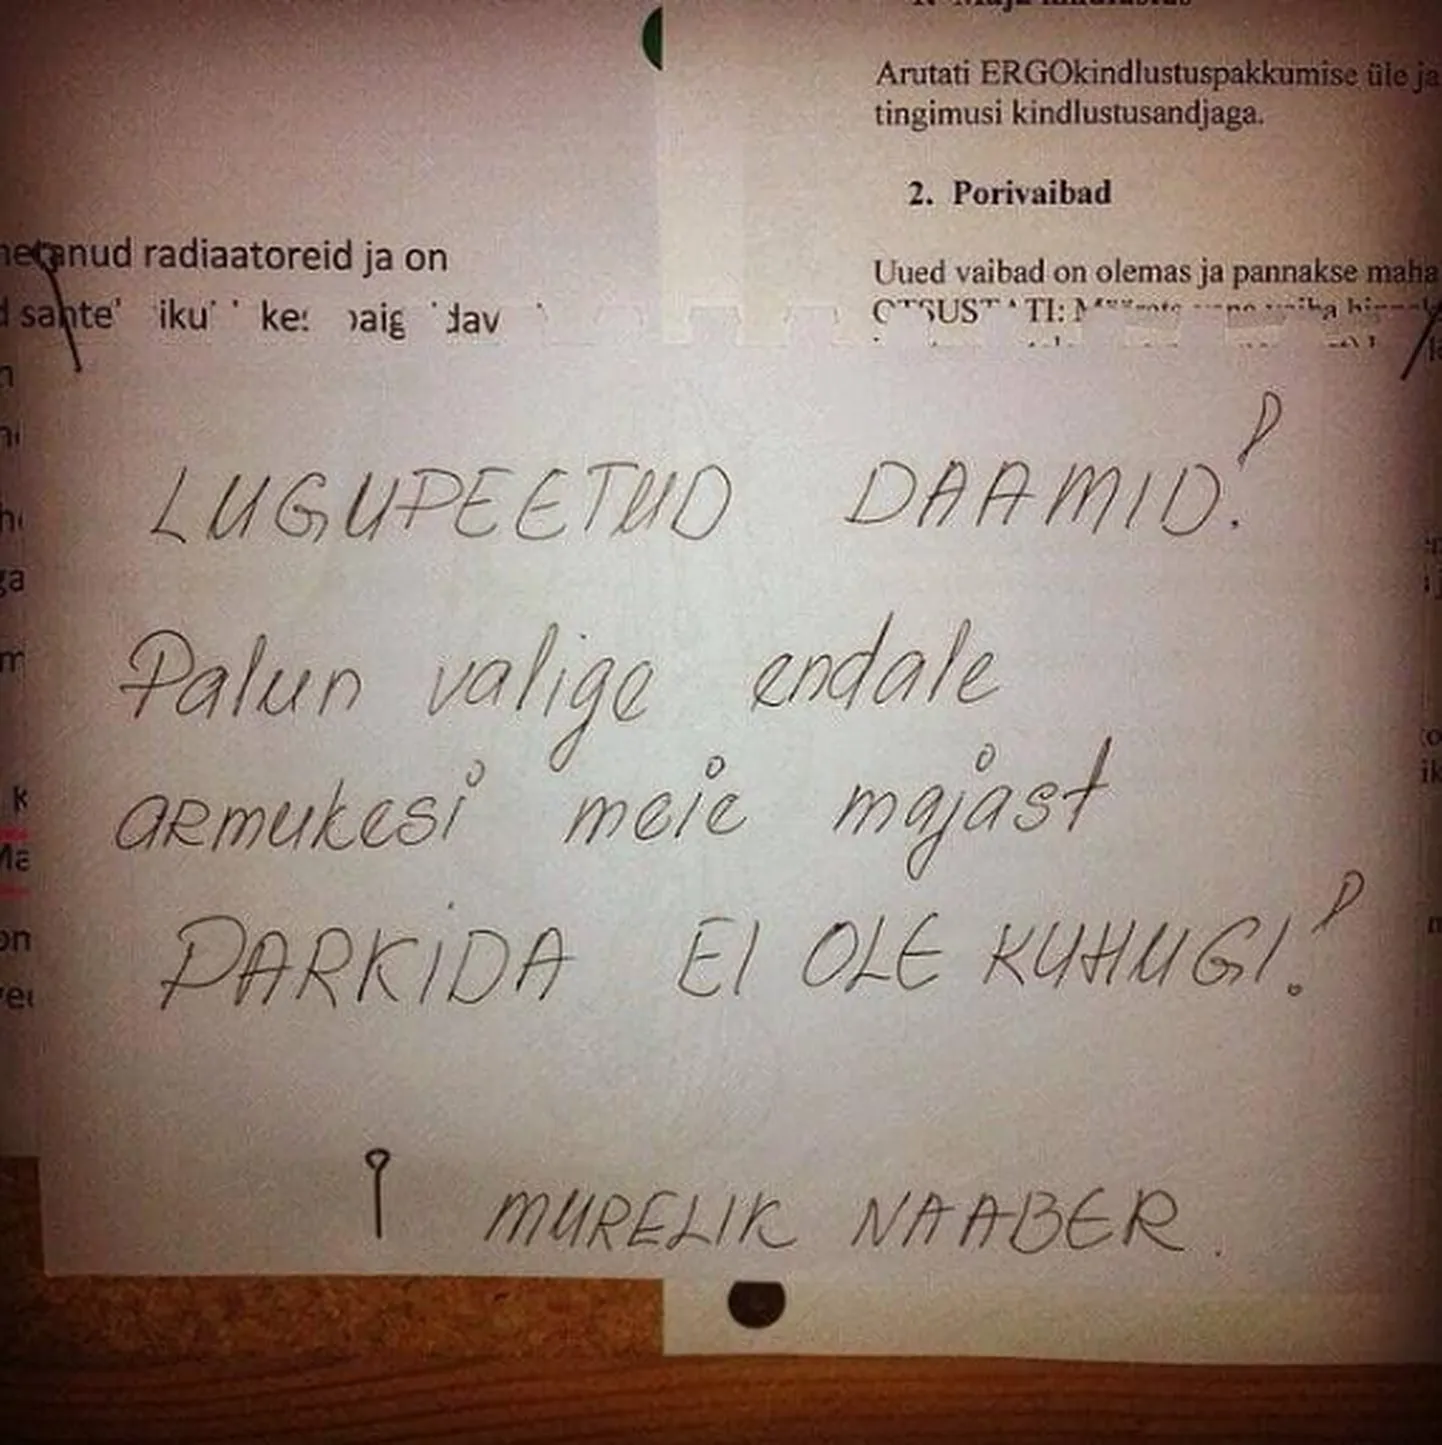 Arutati ERGOkindlustuspakkumise üle ja
tingimusi kindlustusandjaga.
2. Porivaibad
Uued vaibad on olemas ja pannakse maha
radiaatoreid ja on
LUGUPEETUD DAAMID!
Palun valige endale
armukesi meie majast
PARKIDA EI OLE KUHUGI!
MURELIK NAABER.